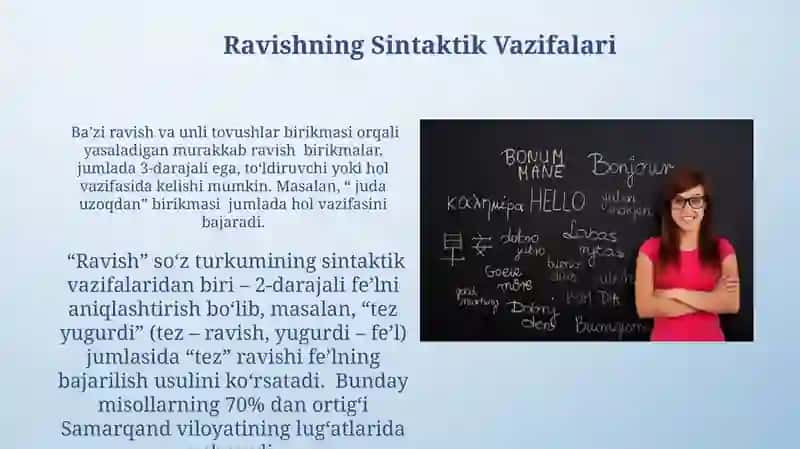 Ravishning Sintaktik Vazifalari
Ba’zi ravish va unli tovushlar birikmasi orqali
yasaladigan murakkab ravish birikmalar,
jumlada 3-darajali ega, to‘ldiruvchi yoki hol
vazifasida kelishi mumkin. Masalan, “ juda
uzoqdan” birikmasi jumlada hol vazifasini
bajaradi.
“Ravish” so‘z turkumining sintaktik
vazifalaridan biri – 2-darajali fe’lni
aniqlashtirish bo‘lib, masalan, “tez
yugurdi” (tez – ravish, yugurdi – fe’l)
jumlasida “tez” ravishi fe’lning
bajarilish usulini ko‘rsatadi. Bunday
misollarning 70% dan ortig‘i
Samarqand viloyatining lug‘atlarida
BONUM
MANE
Bonjour
καλημέρα
HELLO
dobro
jutro
Labas
rytas
Goeie
môre
good
morning
BOM DIA
Dobrý
deň